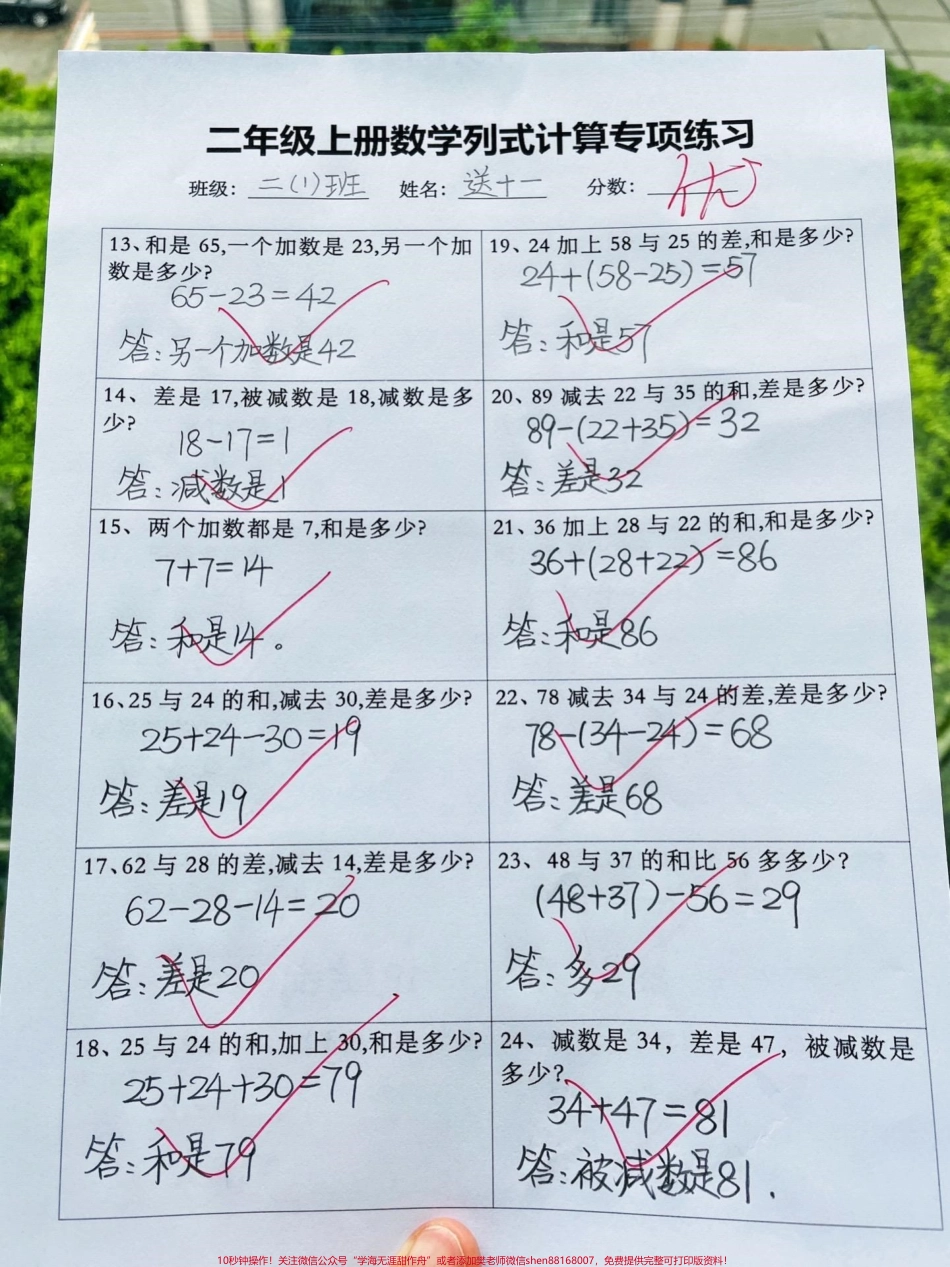 二年级上册数学列式计算专项练习
班级：二(1)班 姓名：送十一 分数：优
13、和是 65,一个加数是 23,另一个加
数是多少?
65-23=42
答：另一个加数是42
14、差是 17,被减数是 18,减数是多
少?
18-17=1
答：减数是1
15、两个加数都是 7,和是多少?
7+7=14
答：和是14。
16、25 与 24 的和,减去 30,差是多少?
25+24-30=19
答：差是19
17、62 与 28 的差,减去 14,差是多少?
62-28-14=20
答：差是20
18、25 与 24 的和,加上 30,和是多少?
25+24+30=79
答：和是79
19、24 加上 58 与 25 的差,和是多少?
24+(58-25)=57
答：和是57
20、89 减去 22 与 35 的和,差是多少?
89-(22+35)=32
答：差是32
21、36 加上 28 与 22 的和,和是多少?
36+(28+22)=86
答：和是86
22、78 减去 34 与 24 的差,差是多少?
78-(34-24)=68
答：差是68
23、48 与 37 的和比 56 多多少?
(48+37)-56=29
答：多29
24、减数是 34，差是 47，被减数是
多少?
34+47=81
答：被减数是81.
10秒钟操作！关注微信公众号“学海无涯甜作舟”或者添加樊老师微信shen88168007，免费提供完整可打印版资料！